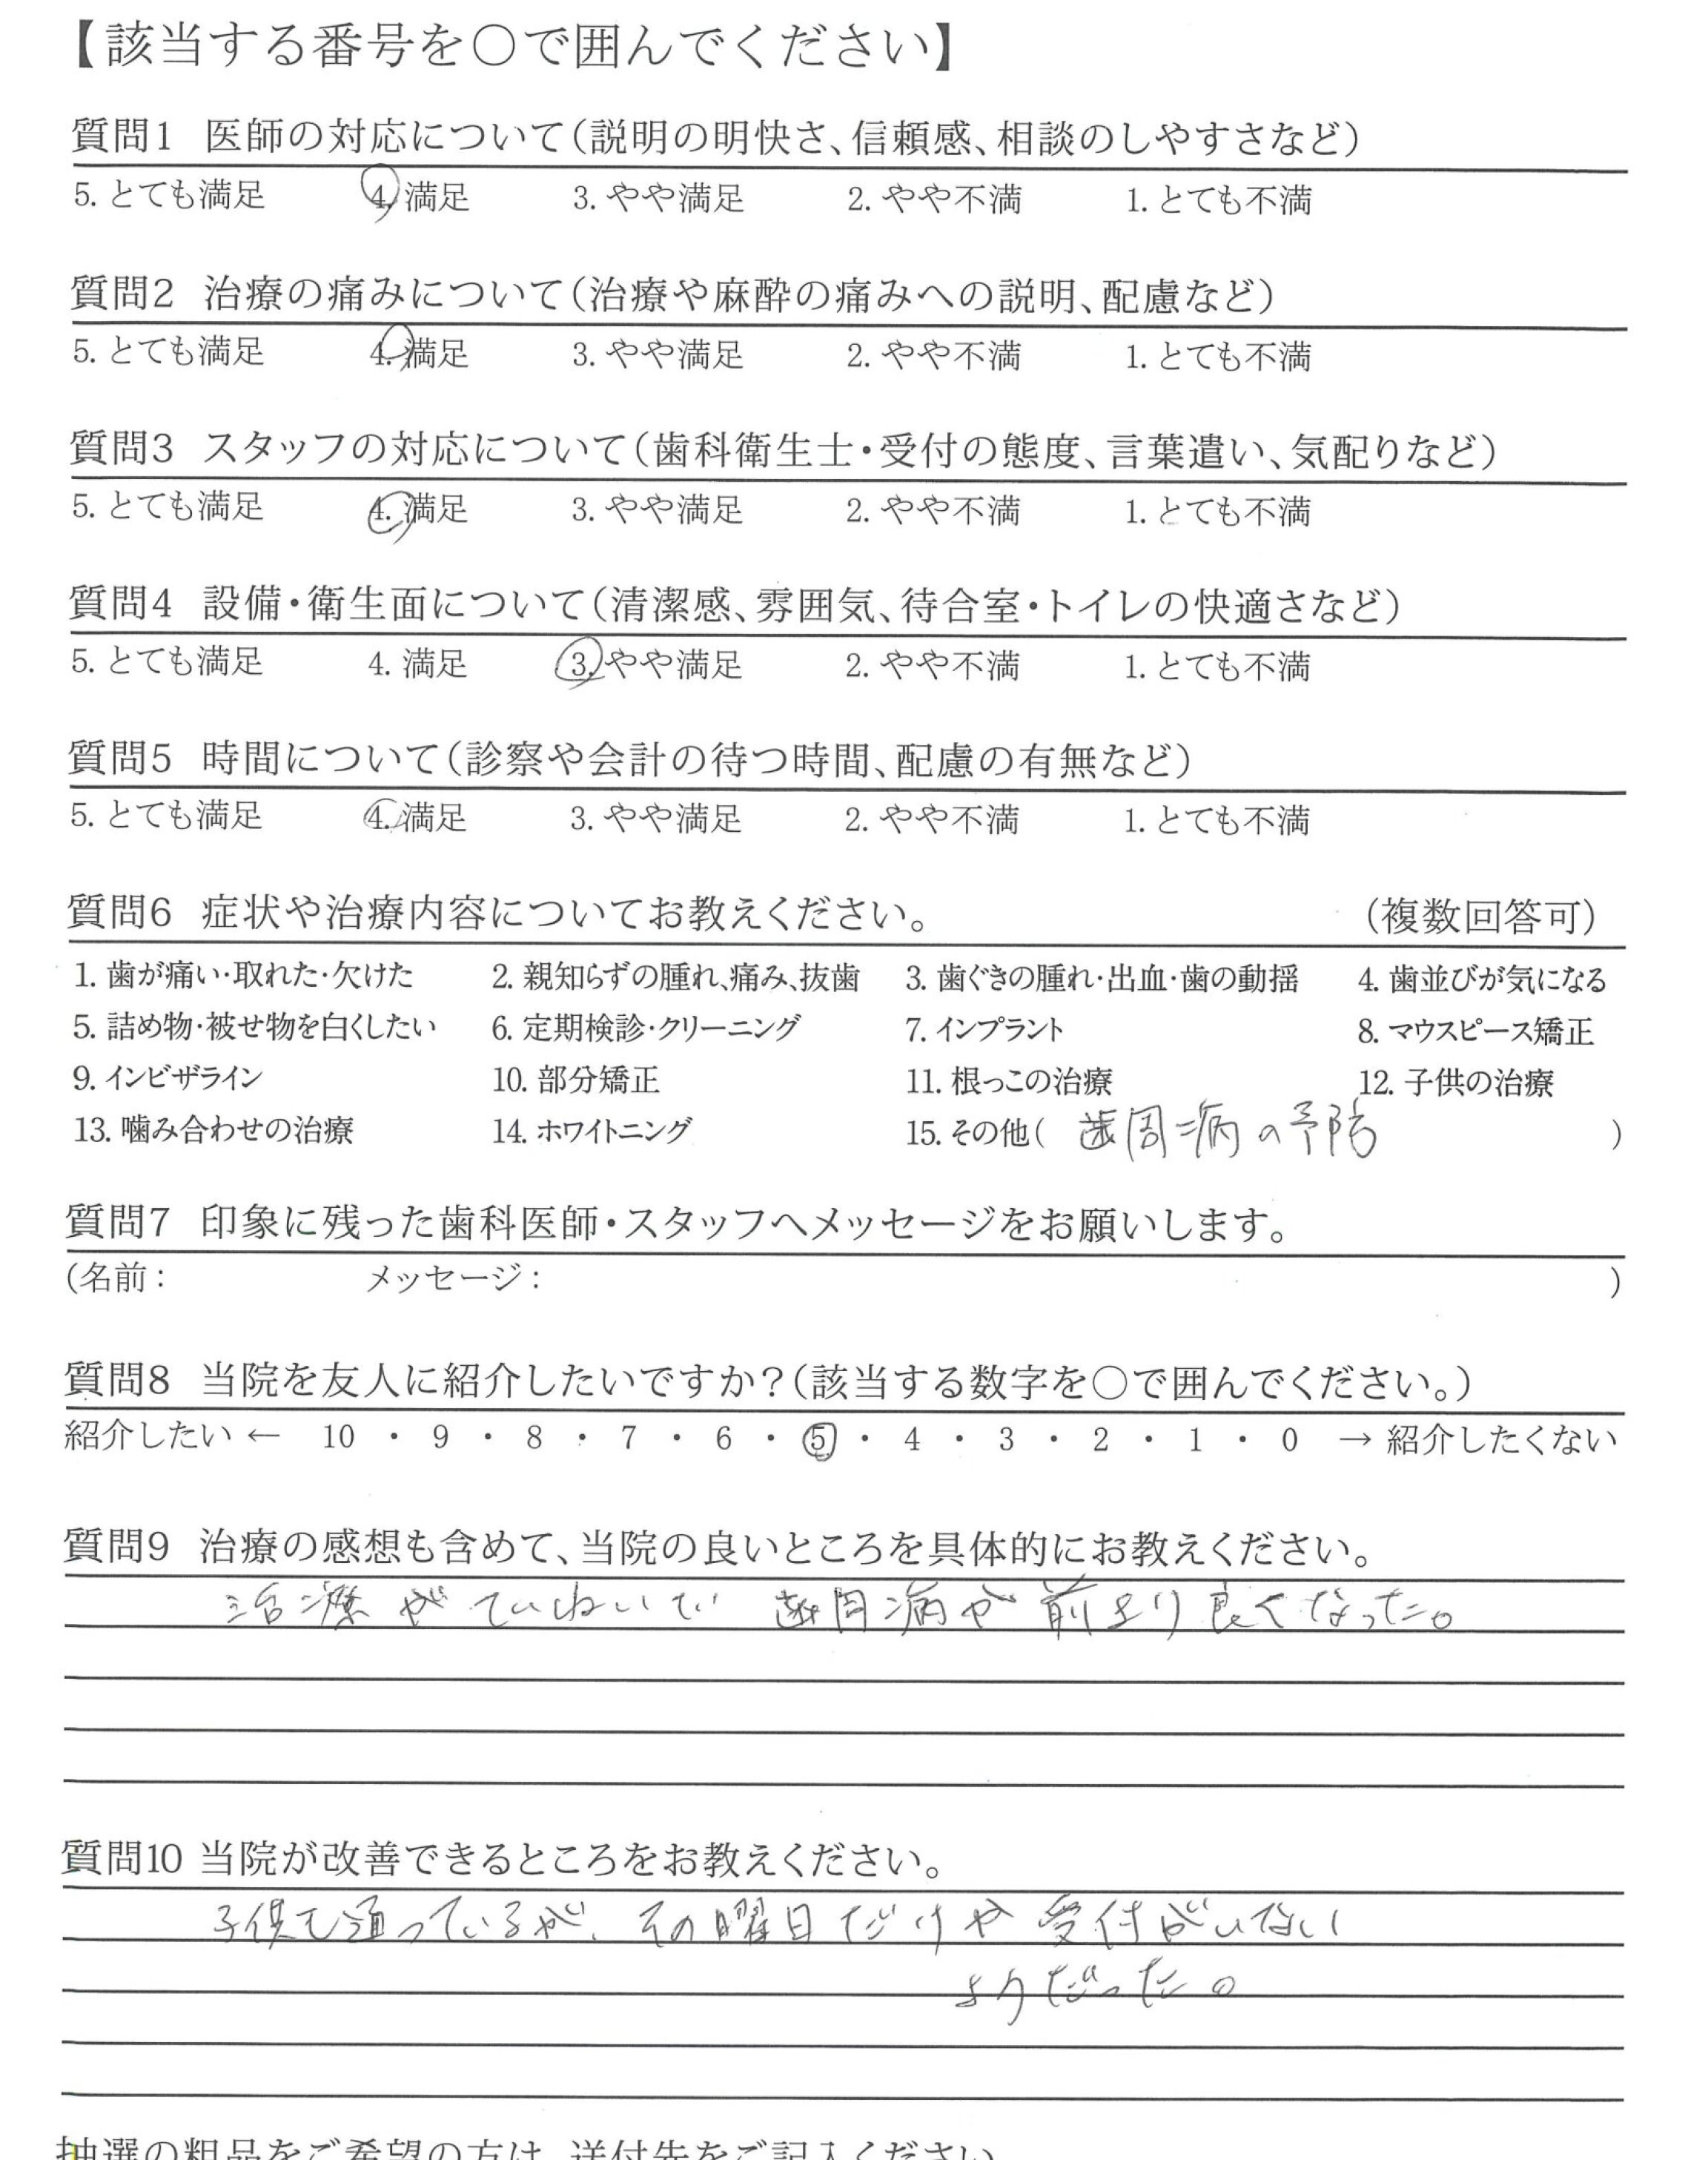 【該当する番号を○で囲んでください】
質問1 医師の対応について(説明の明快さ、信頼感、相談のしやすさなど)
5. とても満足 4. 満足 3. やや満足 2. やや不満 1. とても不満
質問2 治療の痛みについて(治療や麻酔の痛みへの説明、配慮など)
5. とても満足 4. 満足 3. やや満足 2. やや不満 1. とても不満
質問3 スタッフの対応について(歯科衛生士・受付の態度、言葉遣い、気配りなど)
5. とても満足 4. 満足 3. やや満足 2. やや不満 1. とても不満
質問4 設備・衛生面について(清潔感、雰囲気、待合室・トイレの快適さなど)
5. とても満足 4. 満足 3. やや満足 2. やや不満 1. とても不満
質問5 時間について(診察や会計の待つ時間、配慮の有無など)
5. とても満足 4. 満足 3. やや満足 2. やや不満 1. とても不満
質問6 症状や治療内容についてお教えください。 (複数回答可)
1. 歯が痛い・取れた・欠けた 2. 親知らずの腫れ、痛み、抜歯 3. 歯ぐきの腫れ・出血・歯の動揺 4. 歯並びが気になる
5. 詰め物・被せ物を白くしたい 6. 定期検診・クリーニング 7. インプラント 8. マウスピース矯正
9. インビザライン 10. 部分矯正 11. 根っこの治療 12. 子供の治療
13. 噛み合わせの治療 14. ホワイトニング 15. その他( 歯周病の予防 )
質問7 印象に残った歯科医師・スタッフへメッセージをお願いします。
(名前: メッセージ: )
質問8 当院を友人に紹介したいですか?(該当する数字を○で囲んでください。)
紹介したい ← 10 ・ 9 ・ 8 ・ 7 ・ 6 ・ 5 ・ 4 ・ 3 ・ 2 ・ 1 ・ 0 → 紹介したくない
質問9 治療の感想も含めて、当院の良いところを具体的にお教えください。
治療がていねいで 歯周病が前より良くなった。
質問10 当院が改善できるところをお教えください。
子供も通っているが、その曜日だけや受付がいない
ようだった。
抽選の粗品をご希望の方は、送付先をご記入ください